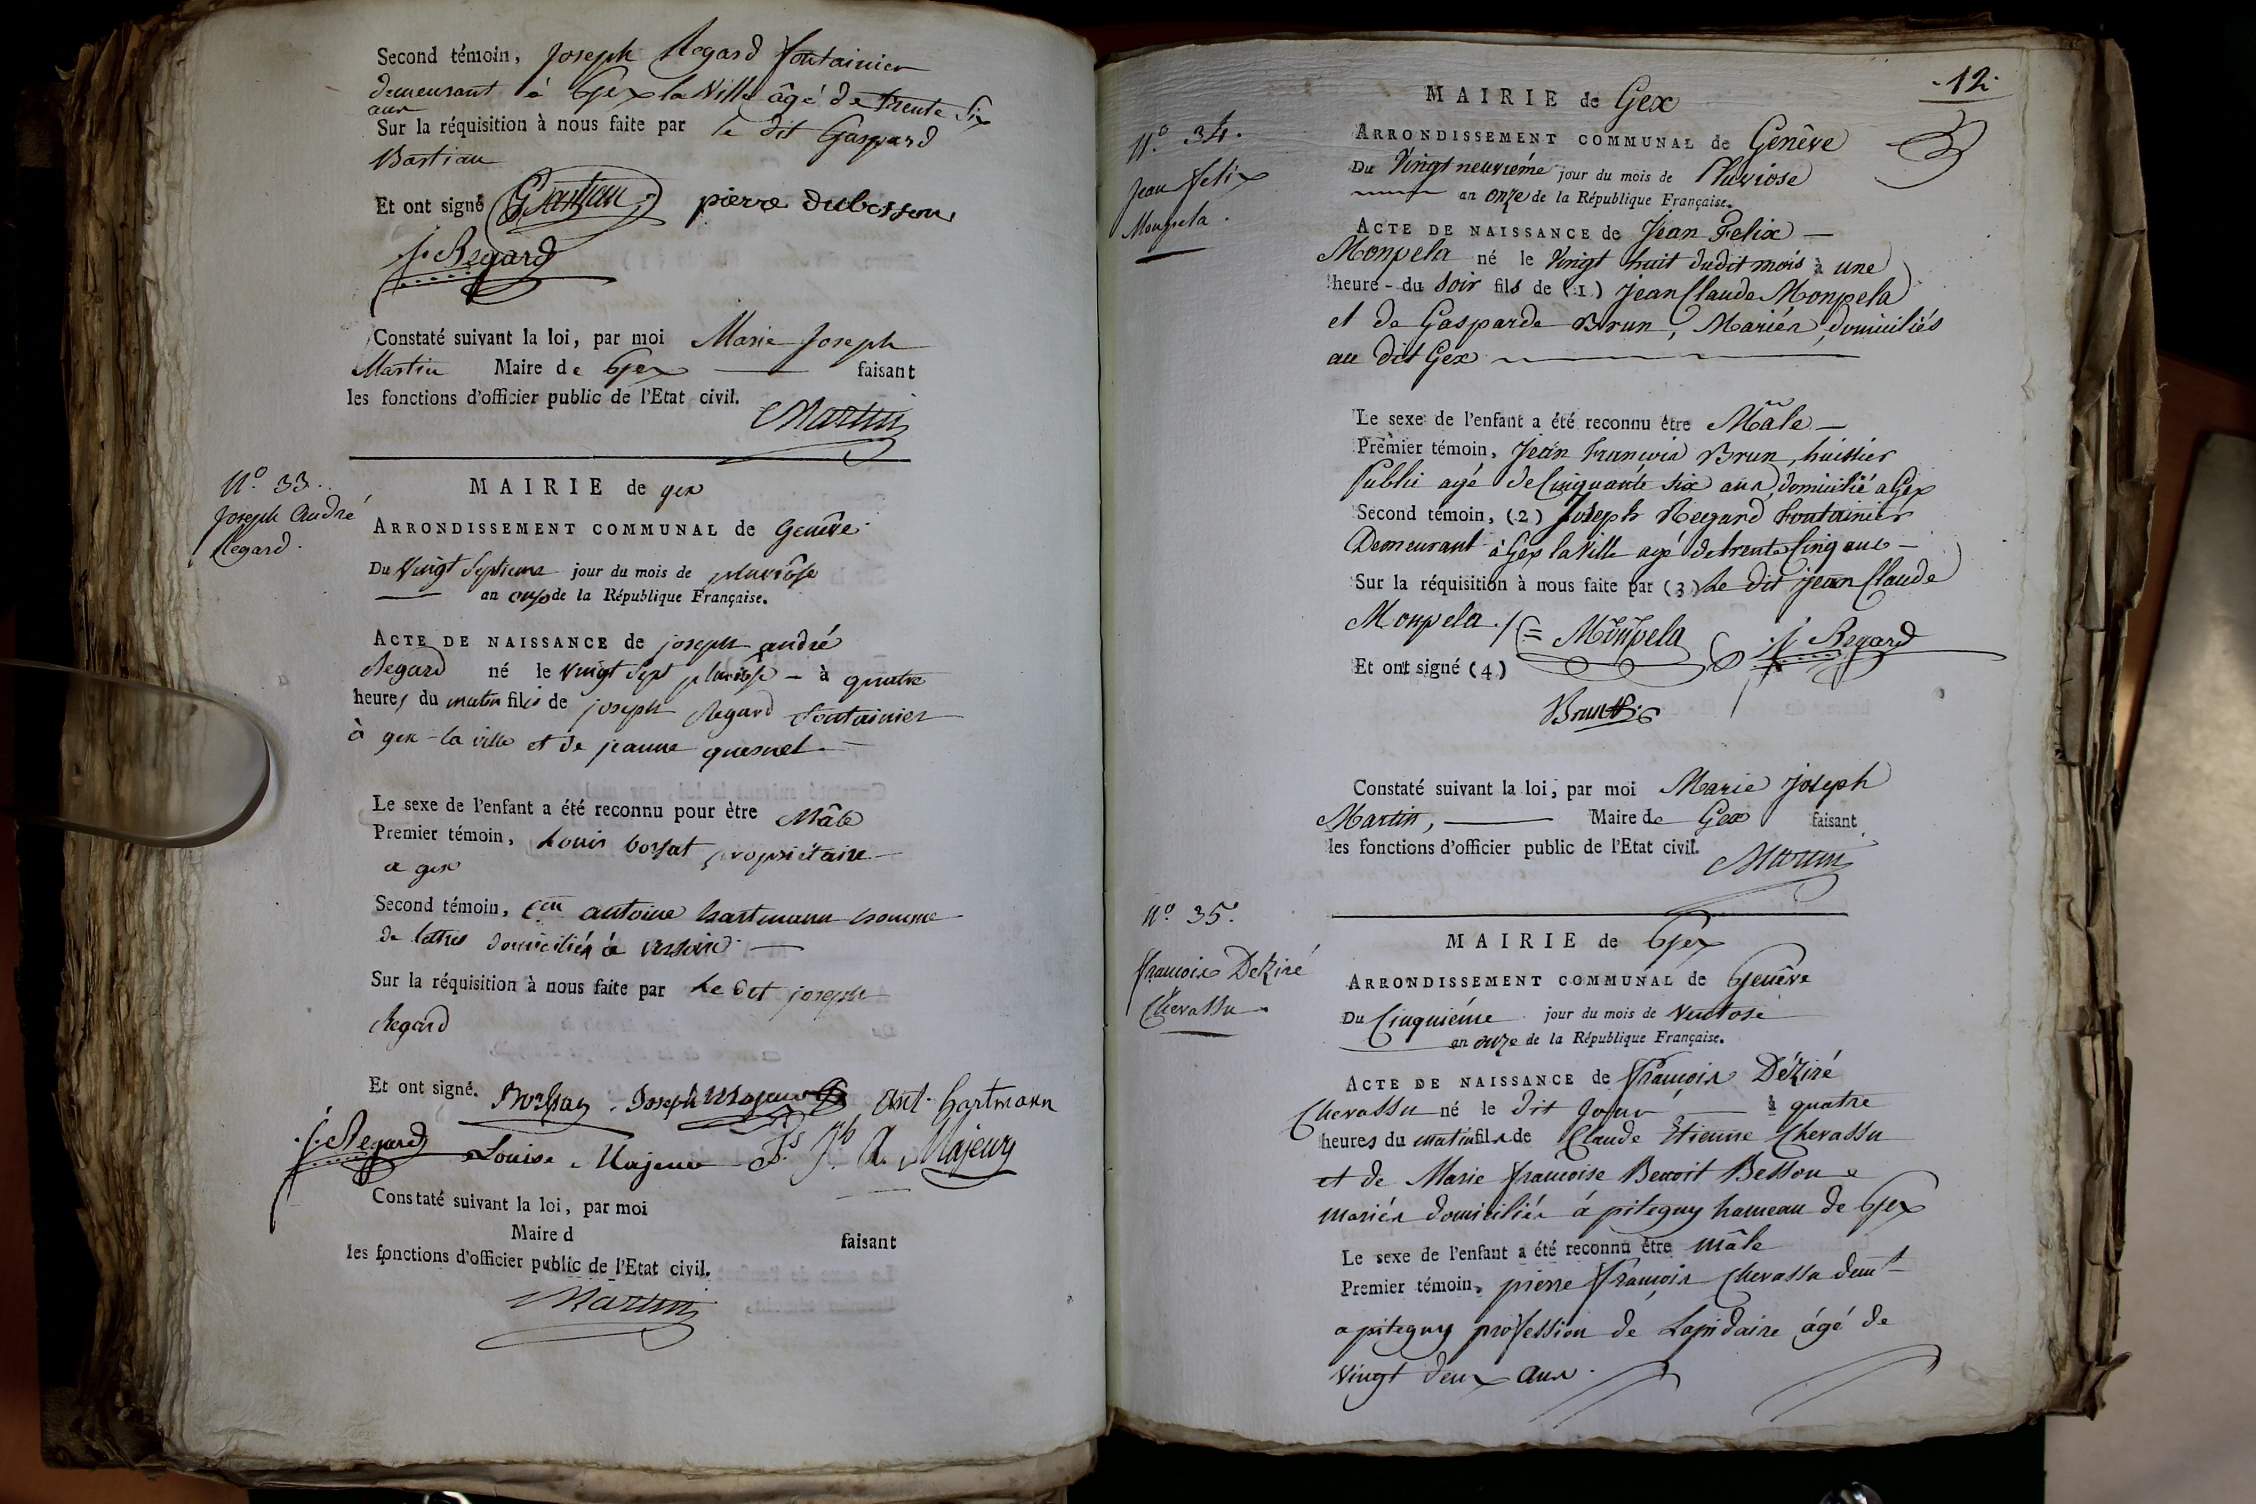 Second témoin, Joseph Regard fontainier
demeurant à Gex la Ville âgé de trente Six
ans
Sur la réquisition à nous faite par le dit Gaspard
Bastian
Et ont signé GBastian pierre dubesson
j. Regard
Constaté suivant la loi, par moi Marie Joseph
Martin Maire de Gex faisant
les fonctions d'officier public de l'Etat civil.
Martin
N.o 33.
Joseph André
Regard.
MAIRIE de gex
ARRONDISSEMENT COMMUNAL de Genêve
Du Vingt Septieme jour du mois de pluviôse
an onze de la République Française.
ACTE DE NAISSANCE de joseph andré
Regard né le vingt Sept pluviôse - à quatre
heures du matin fils de joseph Regard fontainier
à gex-la ville et de jeanne quesnel
Le sexe de l'enfant a été reconnu pour être Mâle
Premier témoin, Louis borsat propriétaire
a gex
Second témoin, C.en antoine hartmann homme
de lettres domicilié à versoix
Sur la réquisition à nous faite par Le dit joseph
Regard
Et ont signé. Borsat Joseph Majeur Ant. hartmann
j. Regard Louise Majeur Fs. Jh. A. Majeur
Constaté suivant la loi, par moi
Maire d faisant
les fonctions d'officier public de l'Etat civil.
Martin
.12.
N.o 34.
Jean Felix
Monpela.
MAIRIE de Gex
ARRONDISSEMENT COMMUNAL de Genêve
Du Vingt neuviéme jour du mois de Pluviose
an onze de la République Française.
ACTE DE NAISSANCE de Jean Felix
Monpela né le Vingt huit dudit mois à une
heure - du soir fils de (1) Jean Claude Monpela
et de Gasparde Brun, Mariés, domiciliés
au dit Gex
Le sexe de l'enfant a été reconnu être Mâle
Premier témoin, Jean François Brun, huissier
Public agé de Cinquante six ans, domicilié a Gex
Second témoin, (2) Joseph Regard Fontainier
Demeurant à Gex la Ville agé de trente Cinq ans
Sur la réquisition à nous faite par (3) Le dit jean Claude
Monpela. Monpela j. Regard
Et ont signé (4)
Brun
Constaté suivant la loi, par moi Marie Joseph
Martin, Maire de Gex faisant
les fonctions d'officier public de l'Etat civil.
Martin
N.o 35.
françois Déziré
Chevassu
MAIRIE de Gex
ARRONDISSEMENT COMMUNAL de Genêve
Du Cinquiéme jour du mois de Ventose
an onze de la République Française.
ACTE DE NAISSANCE de françois Déziré
Chevassu né le dit Jour à quatre
heures du matin fils de Claude Etienne Chevassu
et de Marie françoise Benoit Besson
mariés domiciliés à pitegny hameau de Gex
Le sexe de l'enfant a été reconnu être mâle
Premier témoin, pierre françois Chevassu demt
a pitegny profession de Lapidaire âgé de
vingt deux ans.